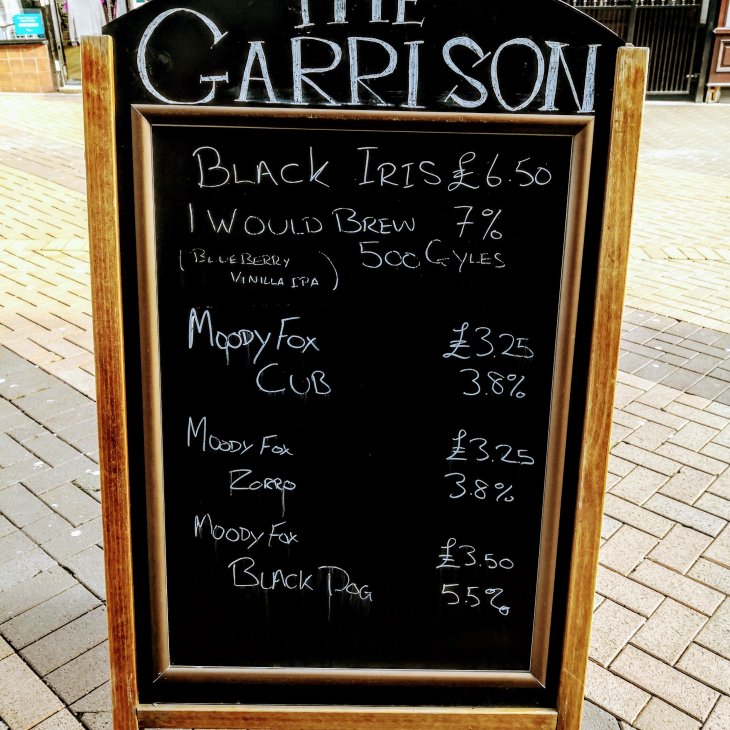 THE
GARRISON
BLACK IRIS £6.50
I WOULD BREW 7%
(BLUEBERRY 500 GYLES
VANILLA IPA)
MOODY FOX £3.25
CUB 3.8%
MOODY FOX £3.25
ZORRO 3.8%
MOODY FOX £3.50
BLACK DOG 5.5%